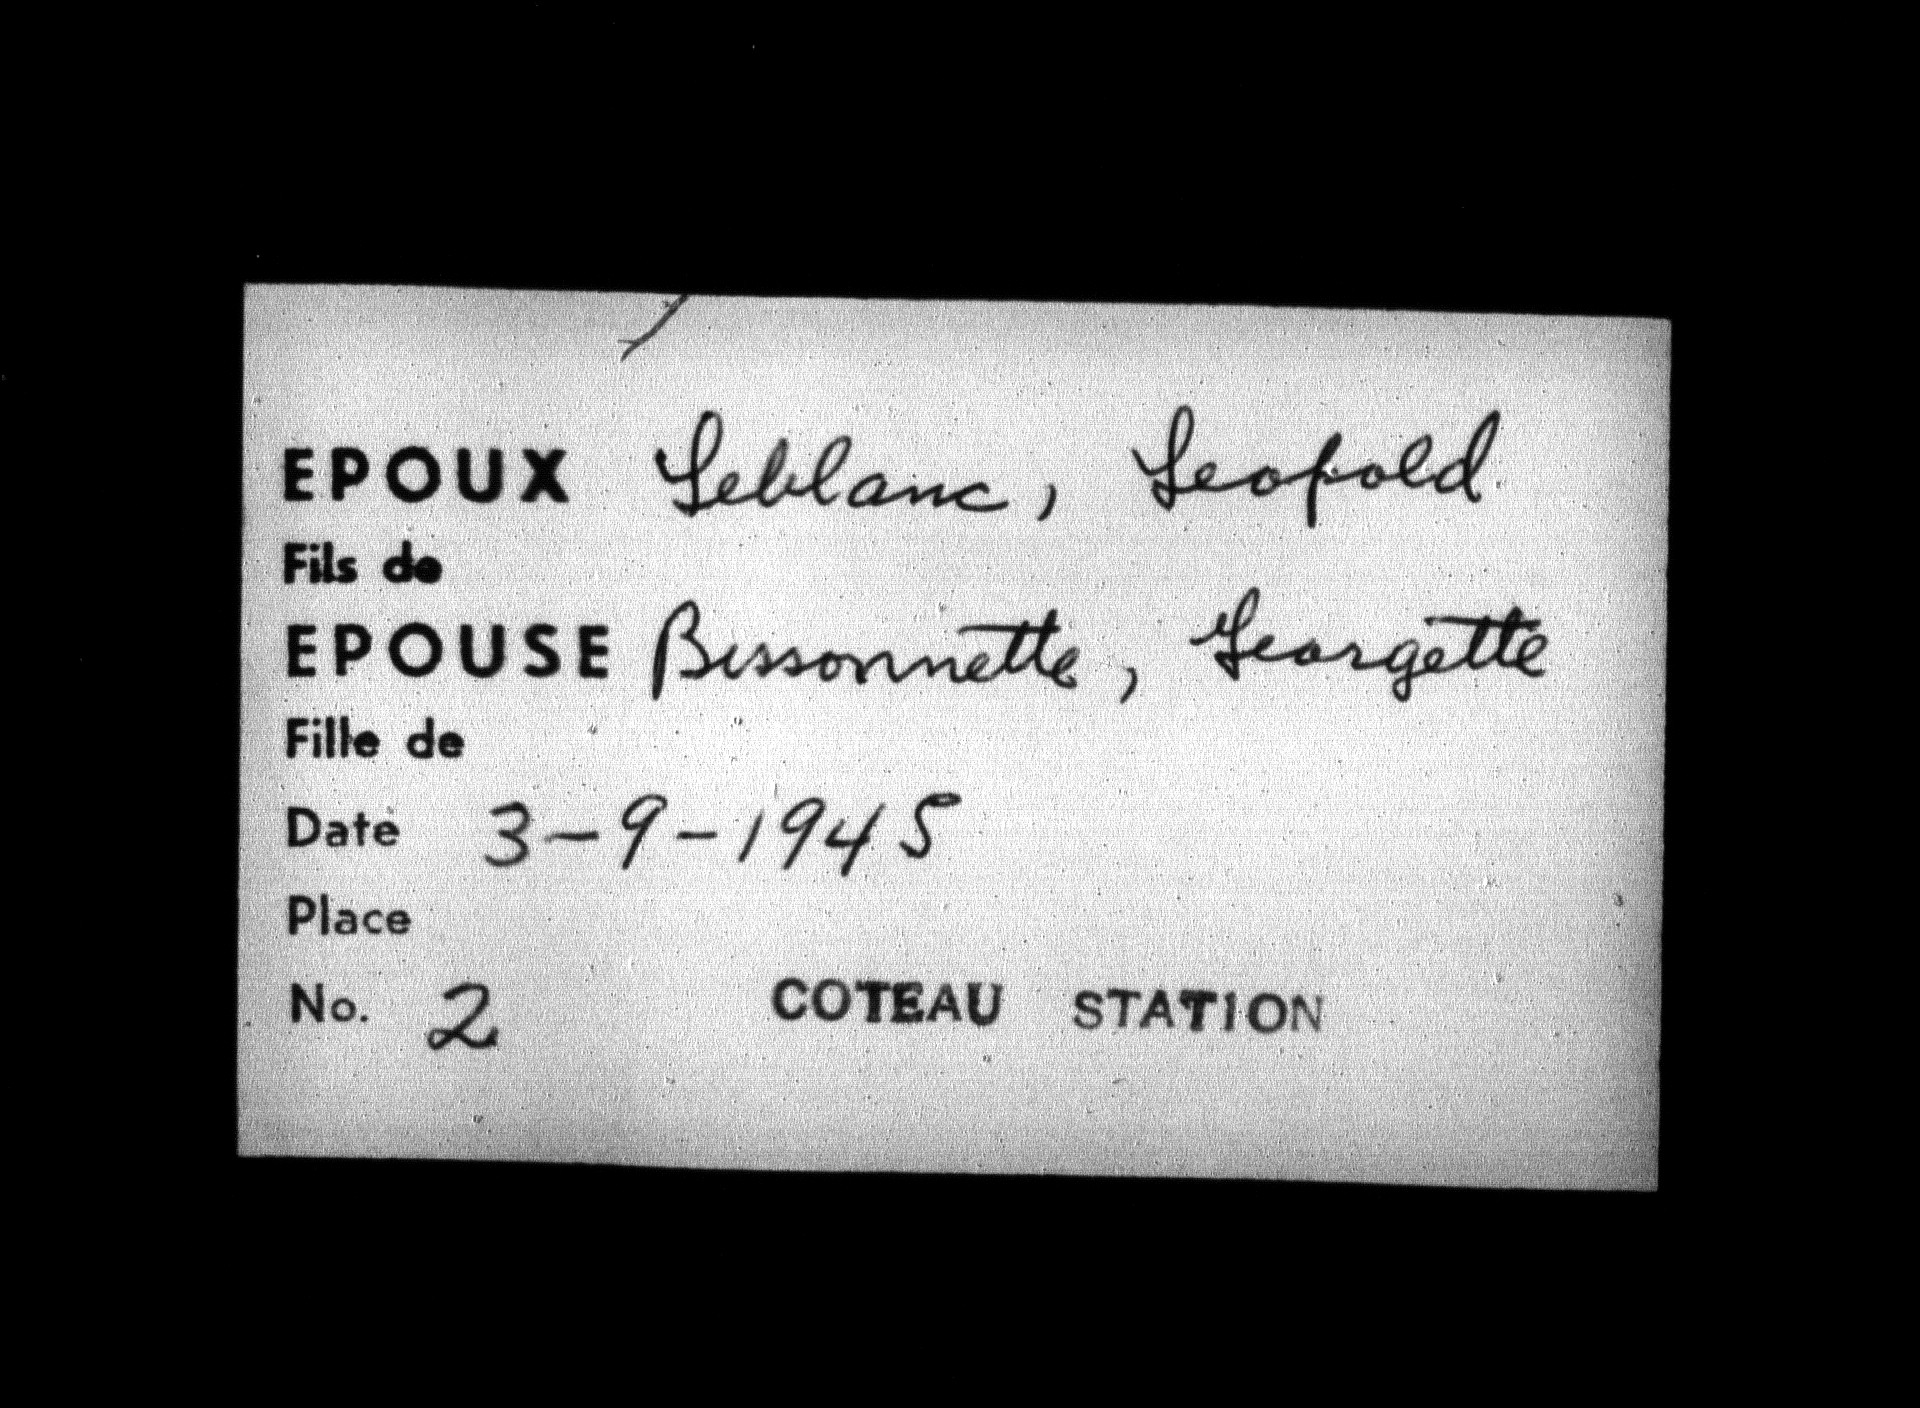 EPOUX Leblanc, Leopold
Fils de
EPOUSE Bissonnette, Georgette
Fille de
Date 3-9-1945
Place
No. 2 COTEAU STATION